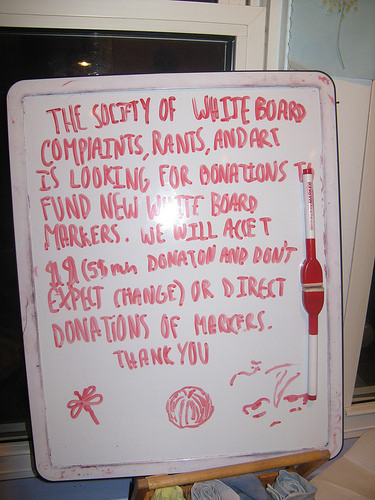 THE SOCITY OF WHITE BOARD
COMPLAINTS, RANTS, AND ART
IS LOOKING FOR DONATIONS TO
FUND NEW WHITE BOARD
MARKERS. WE WILL ACCET
$$ (5$ min DONATON AND DON'T
EXPECT CHANGE) OR DIRECT
DONATIONS OF MARKERS.
THANK YOU